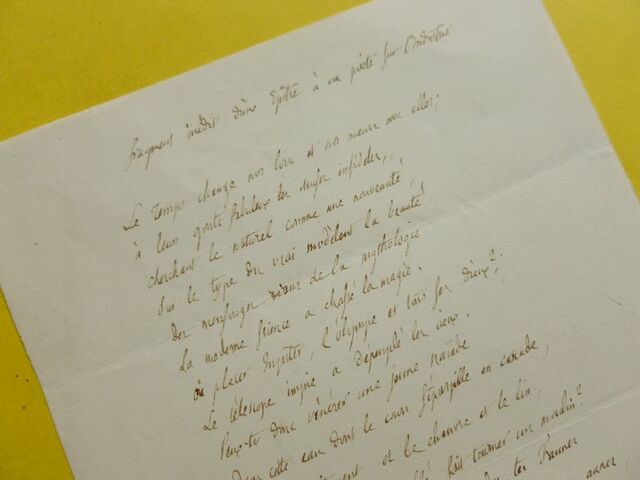 fragment inédit d'une Epître à un poète sur l'Industrie
Le Temps change nos loix et nos mœurs avec elles;
à leurs goûts fabuleux les muses infidèles,
cherchant le naturel comme une nouveauté,
Sur le type du vrai modèlent la beauté!
Des mensonges vieux de la mythologie
La moderne science a chassé la magie.
où placer Jupiter, l'olympe et tous ses dieux?
Le télescope impie a dépeuplé les cieux.
Peux-tu donc vénérer une jeune naïade
Dans cette eau dont le cours s'éparpille en cascade,
et le chanvre et le lin,
fait tourner un moulin?